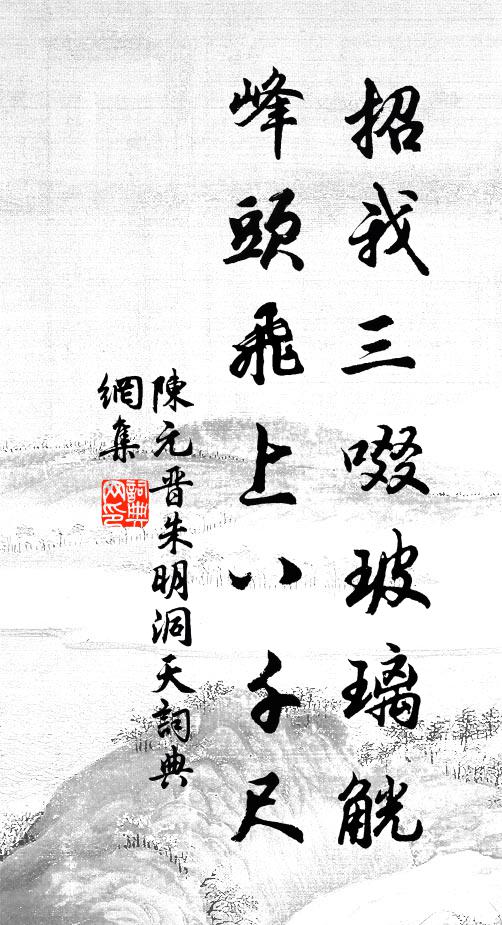 招我三啜玻璃觥
峰頭飛上八千尺
陳元晋朱明洞天詞典
網集
詞典網印